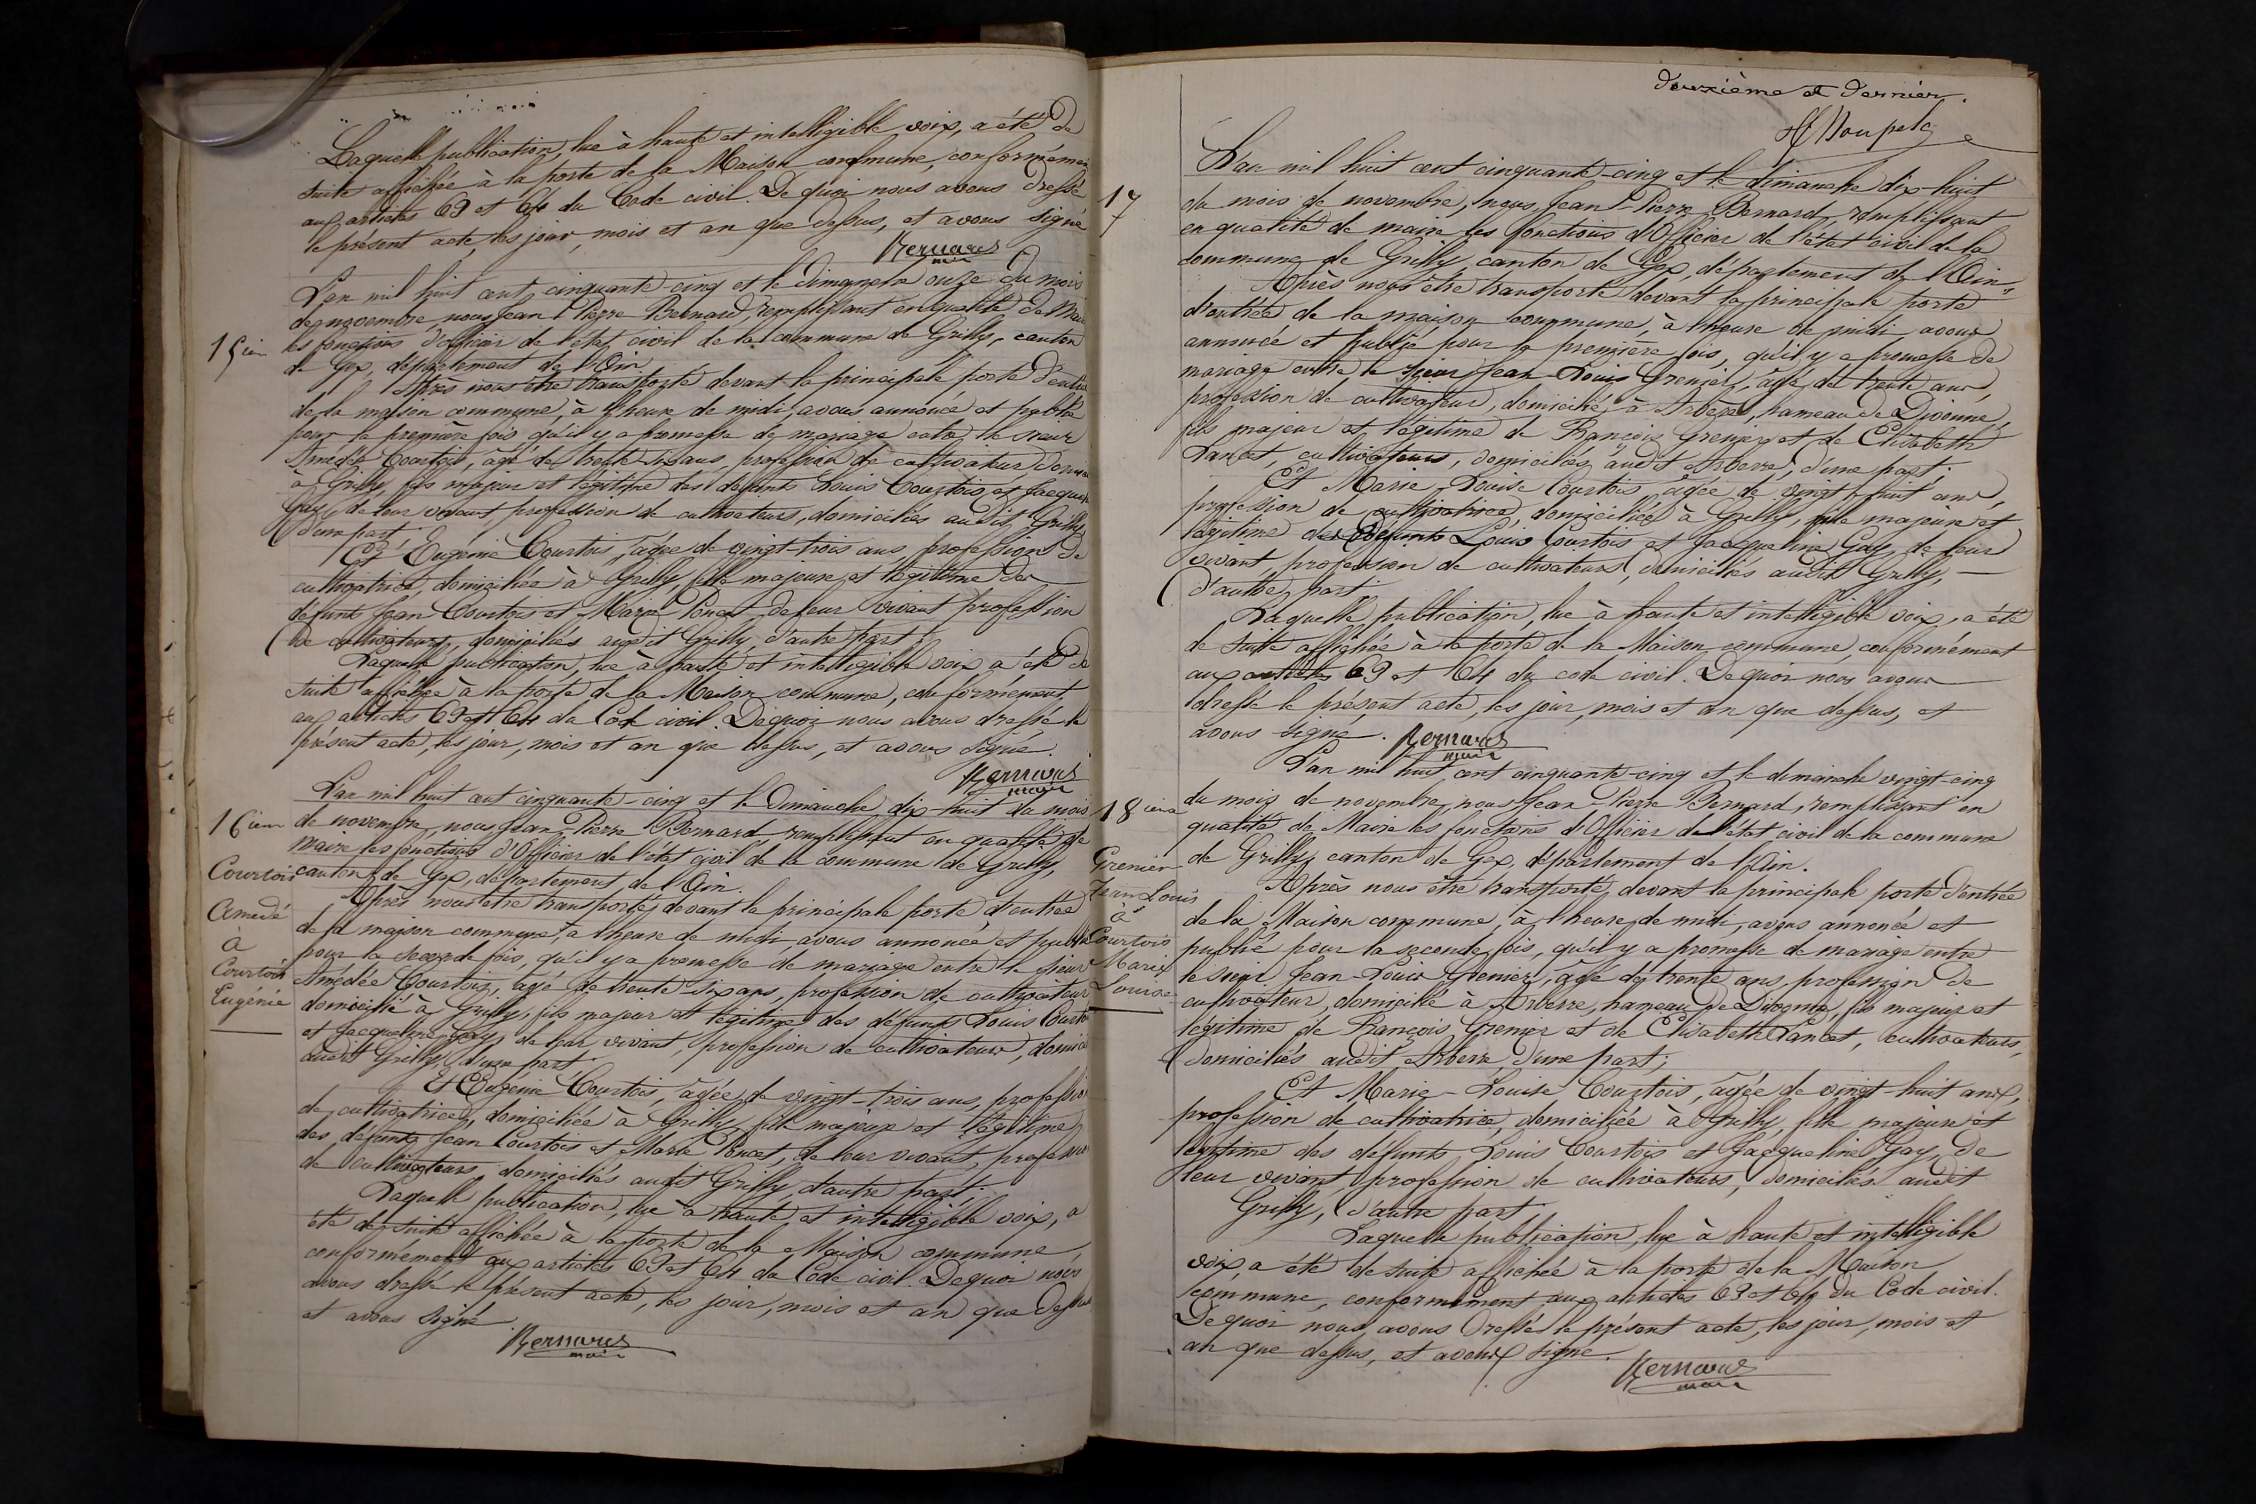 Laquelle publication, lue à haute et intelligible voix, a été de
suite affichée à la porte de la Maison commune, conformément
aux articles 63 et 64 du Code civil. De quoi nous avons dressé
le présent acte, les jour, mois et an que dessus, et avons signé
Bernard
maire
15ième
L'an mil huit cent cinquante-cinq et le dimanche onze du mois
de novembre, nous Jean Pierre Bernard, remplissant en qualité de Maire
les fonctions d'officier de l'état civil de la commune de Grilly, canton
de Gex, département de l'Ain
Après nous être transporté devant la principale porte d'entrée
de la maison commune, à l'heure de midi, avons annoncé et publié
pour la première fois qu'il y a promesse de mariage entre le sieur
Amédée Courtois, âgé de trente-six ans, profession de cultivateur
à Grilly, fils majeur et légitime des défunts Louis Courtois et Jacqueline
Gay, de leur vivant profession de cultivateurs, domiciliés audit Grilly,
d'une part;
Et Eugénie Courtois, âgée de vingt-trois ans, profession de
cultivatrice, domiciliée à Grilly, fille majeure et légitime des
défunts Jean Courtois et Marie Poncet de leur vivant profession
de cultivateurs, domiciliés audit Grilly, d'autre part;
Laquelle publication, lue à haute et intelligible voix, a été de
suite affichée à la porte de la Maison commune, conformément
aux articles 63 et 64 du Code civil. De quoi nous avons dressé le
présent acte, les jour, mois et an que dessus, et avons signé.
Bernard
maire
16ième
Courtois
Amédé
à
Courtois
Eugénie
L'an mil huit cent cinquante-cinq et le Dimanche dix-huit du mois
de novembre, nous Jean Pierre Bernard remplissant en qualité de
maire les fonctions d'Officier de l'état civil de la commune de Grilly,
canton de Gex, département de l'Ain.
Après nous être transporté devant la principale porte d'entrée
de la maison commune, à l'heure de midi, avons annoncé et publié
pour la seconde fois, qu'il y a promesse de mariage entre le sieur
Amédée Courtois, âgé de trente-six ans, profession de cultivateur
domicilié à Grilly, fils majeur et légitime des défunts Louis Courtois
et Jacqueline Gay, de leur vivant, profession de cultivateurs,
audit Grilly, d'une part;
Et Eugénie Courtois, âgée de vingt-trois ans, profession
de cultivatrice, domiciliée à Grilly, fille majeure et légitime
des défunts Jean Courtois et Marie Poncet, de leur vivant, profession
de cultivateurs, domiciliés audit Grilly, d'autre part;
Laquelle publication, lue à haute et intelligible voix, a
été de suite affichée à la porte de la Maison commune
conformément aux articles 63 et 64 du Code civil. De quoi nous
avons dressé le présent acte, les jour, mois et an que dessus
et avons signé.
Bernard
maire
deuxième et dernier.
17
L'an mil huit cent cinquante-cinq et le dimanche dix-huit
du mois de novembre, nous Jean-Pierre Bernard, remplissant
en qualité de maire les fonctions d'Officier de l'état civil de la
commune de Grilly, canton de Gex, département de l'Ain,
Après nous être transporté devant la principale porte
d'entrée de la maison commune, à l'heure de midi avons
annoncé et publié pour la première fois, qu'il y a promesse de
mariage entre le sieur Jean-Louis Grenier, âgé de trente ans,
profession de cultivateur, domicilié à Arbère, hameau de Divonne,
fils majeur et légitime de François Grenier et de Elisabeth
Lancet, cultivateurs, domiciliés audit Arberre, d'une part;
Et Marie-Louise Courtois âgée de vingt-huit ans,
profession de cultivatrice, domiciliée à Grilly, fille majeure et
légitime des défunts Louis Courtois et Jacqueline Gay, de leur
vivant, profession de cultivateurs, domiciliés audit Grilly,
d'autre part;
Laquelle publication, lue à haute et intelligible voix, a été
de suite affichée à la porte de la Maison commune, conformément
aux articles 63 et 64 du code civil. De quoi nous avons
dressé le présent acte, les jour, mois et an que dessus, et
avons signé.
Bernard
maire
18ième
Grenier
Jean Louis
à
Courtois
Marie
Louise
L'an mil huit cent cinquante-cinq et le dimanche vingt-cinq
du mois de novembre, nous Jean-Pierre Bernard, remplissant en
qualité de Maire les fonctions d'Officier de l'état civil de la commune
de Grilly, canton de Gex, département de l'Ain.
Après nous être transporté, devant la principale porte d'entrée
de la Maison commune, à l'heure de midi, avons annoncé et
publié pour la seconde fois, qu'il y a promesse de mariage entre
le sieur Jean-Louis Grenier, âgé de trente ans, profession de
cultivateur, domicilié à Arberre, hameau de Divonne, fils majeur et
légitime de François Grenier et de Elisabeth Lancet, cultivateurs,
domiciliés audit Arberre, d'une part;
Et Marie-Louise Courtois, âgée de vingt-huit ans,
profession de cultivatrice, domiciliée à Grilly, fille majeure et
légitime des défunts Louis Courtois et Jacqueline Gay, de
leur vivant, profession de cultivateurs, domiciliés audit
Grilly, d'autre part;
Laquelle publication, lue à haute et intelligible
voix, a été de suite affichée à la porte de la Maison
commune, conformément aux articles 63 et 64 du Code civil.
De quoi nous avons dressé le présent acte, les jour, mois et
an que dessus, et avons signé.
Bernard
maire